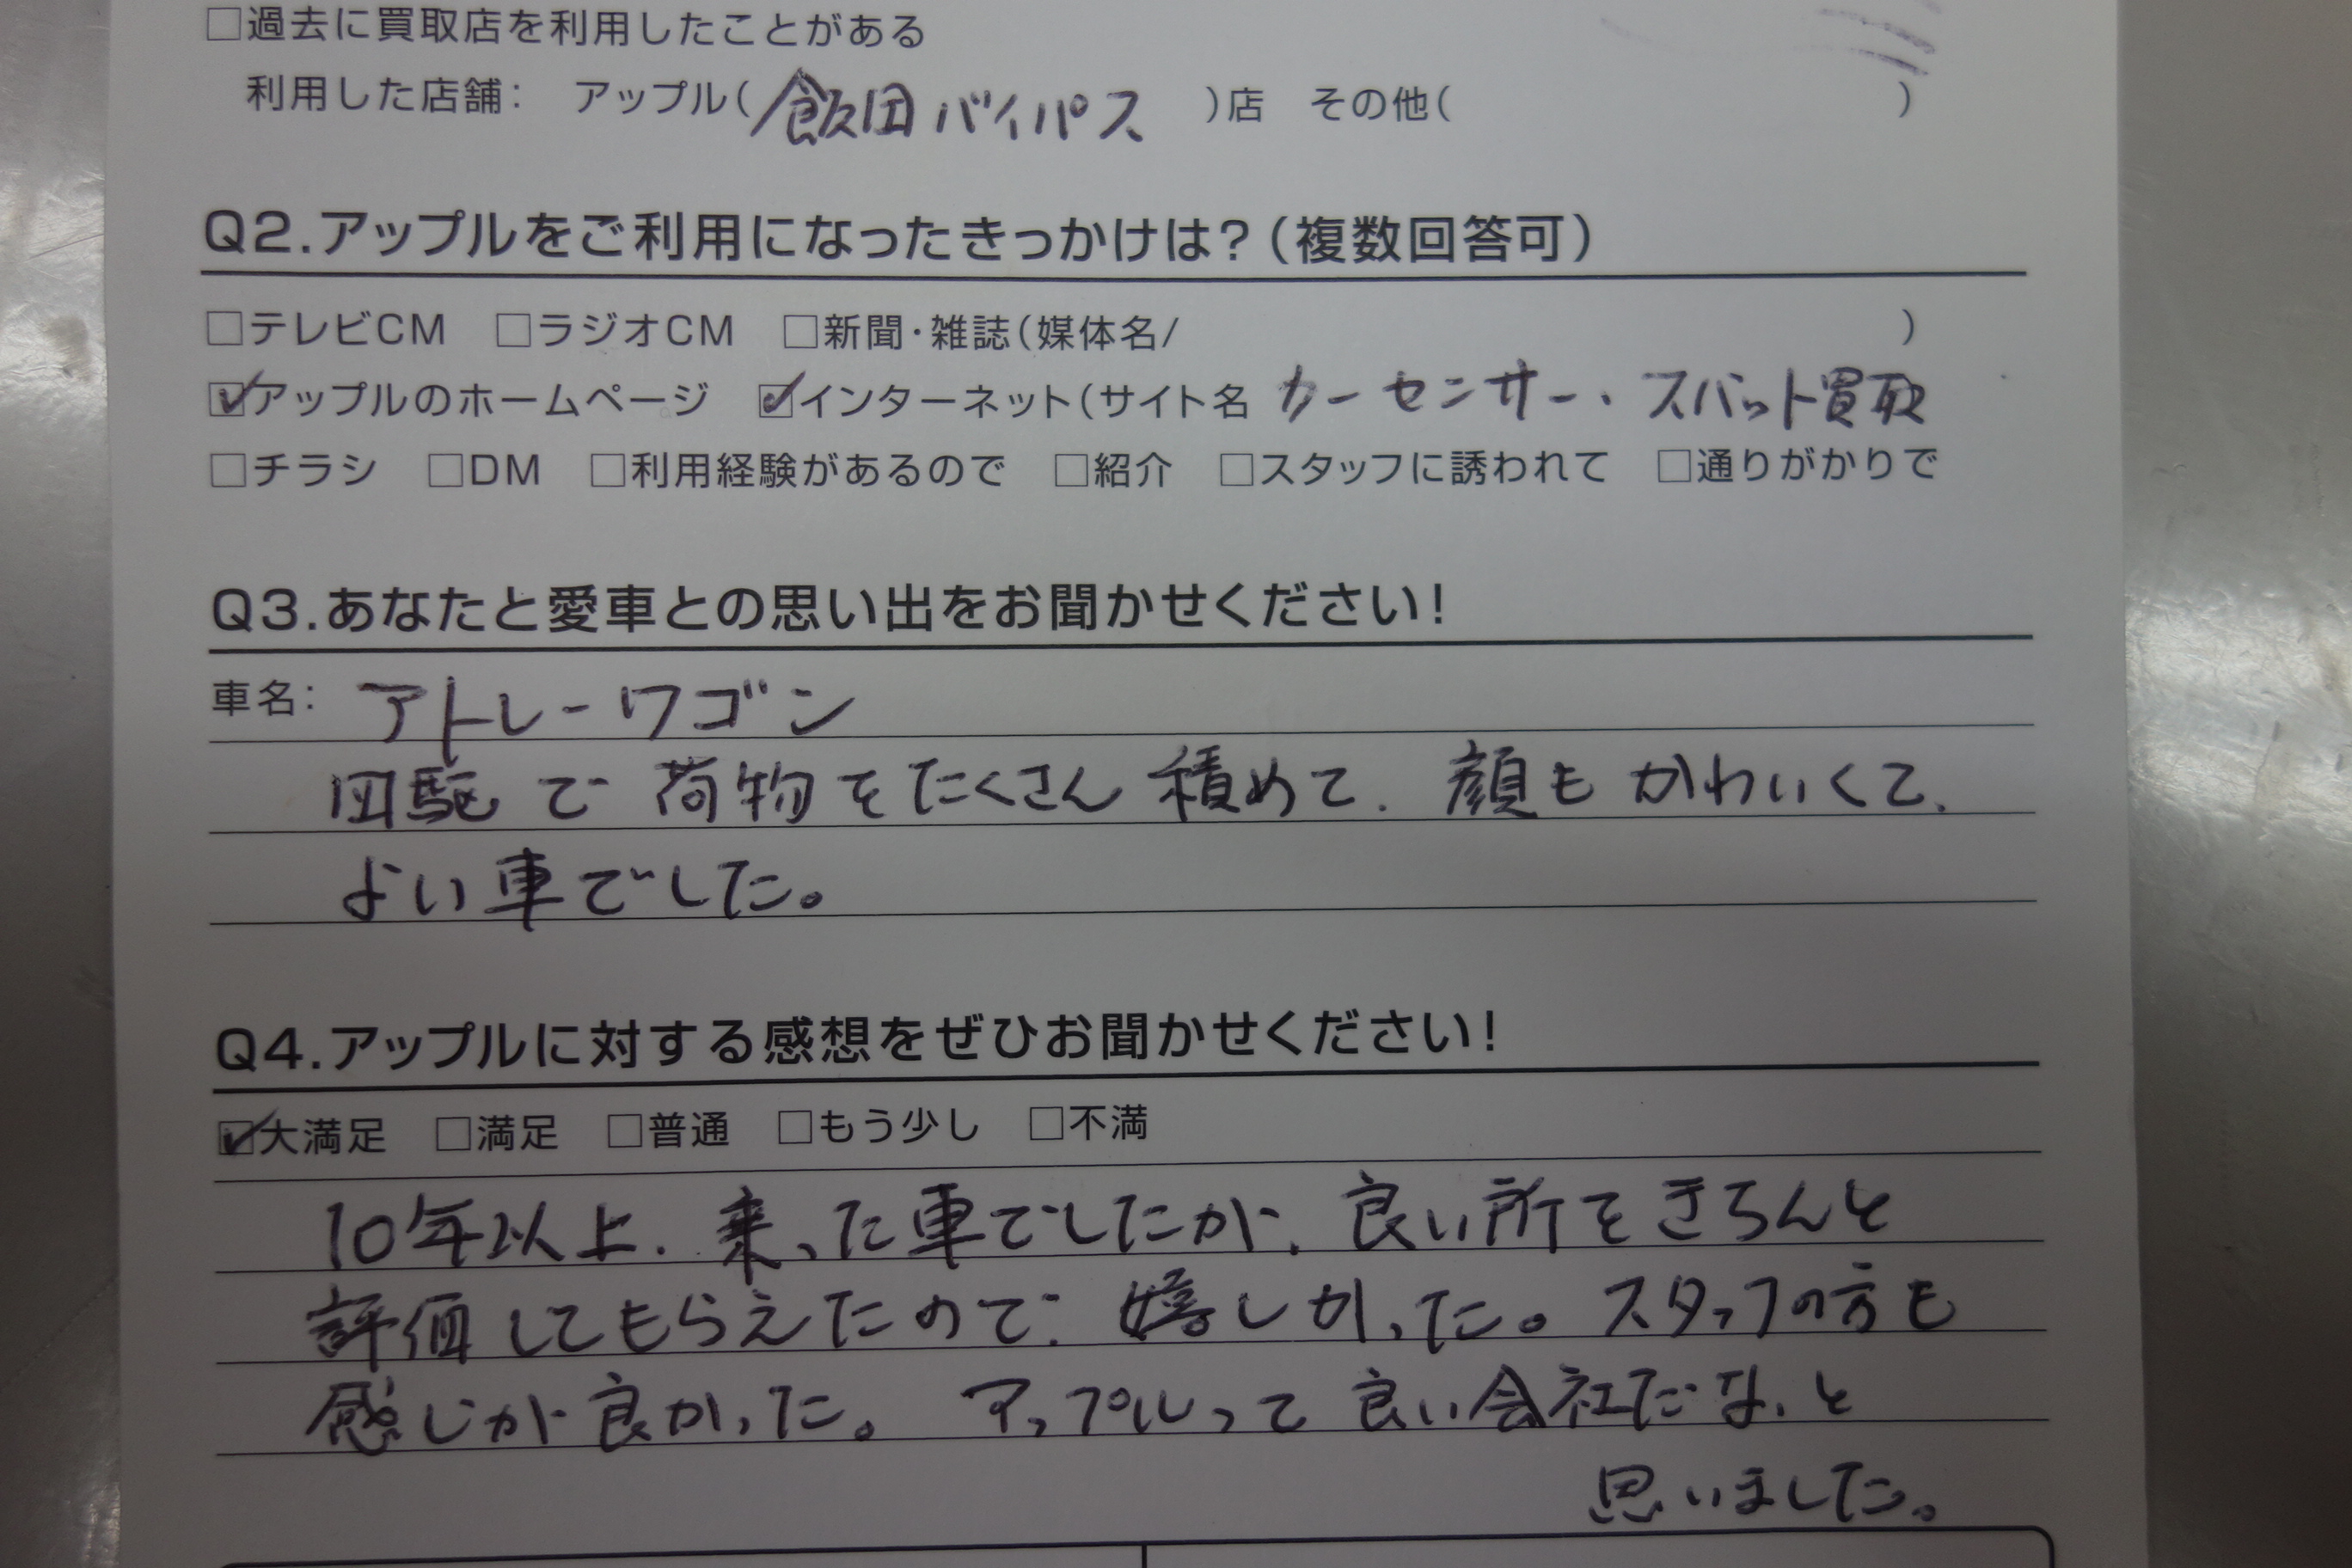 □過去に買取店を利用したことがある
利用した店舗： アップル(飯田バイパス )店 その他( )
Q2.アップルをご利用になったきっかけは？(複数回答可)
□テレビCM □ラジオCM □新聞・雑誌(媒体名/ )
☑アップルのホームページ ☑インターネット(サイト名 カーセンサー・ズバット買取
□チラシ □DM □利用経験があるので □紹介 □スタッフに誘われて □通りがかりで
Q3.あなたと愛車との思い出をお聞かせください！
車名： アトレーワゴン
四駆で荷物をたくさん積めて、顔もかわいくて、
よい車でした。
Q4.アップルに対する感想をぜひお聞かせください！
☑大満足 □満足 □普通 □もう少し □不満
10年以上、乗った車でしたが、良い所をきちんと
評価してもらえたので、嬉しかった。スタッフの方も
感じが良かった。アップルって良い会社だな、と
思いました。